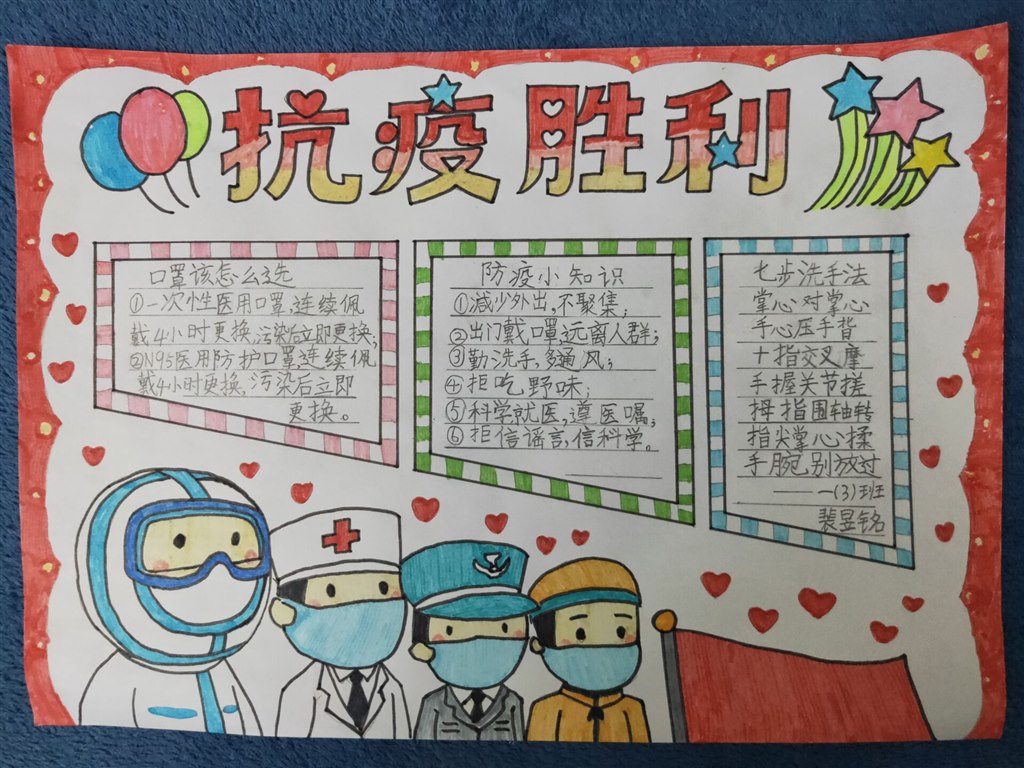 抗疫胜利
口罩该怎么选
①一次性医用口罩,连续佩
戴4小时更换,污染后立即更换,
②N95医用防护口罩,连续佩
戴4小时更换,污染后立即
更换。
防疫小知识
①减少外出,不聚集;
②出门戴口罩,远离人群;
③勤洗手,多通风;
④拒吃野味;
⑤科学就医,遵医嘱;
⑥拒信谣言,信科学。
七步洗手法
掌心对掌心
手心压手背
十指交叉摩
手握关节搓
拇指围轴转
指尖掌心揉
手腕别放过
——一(3)班
裴昱铭